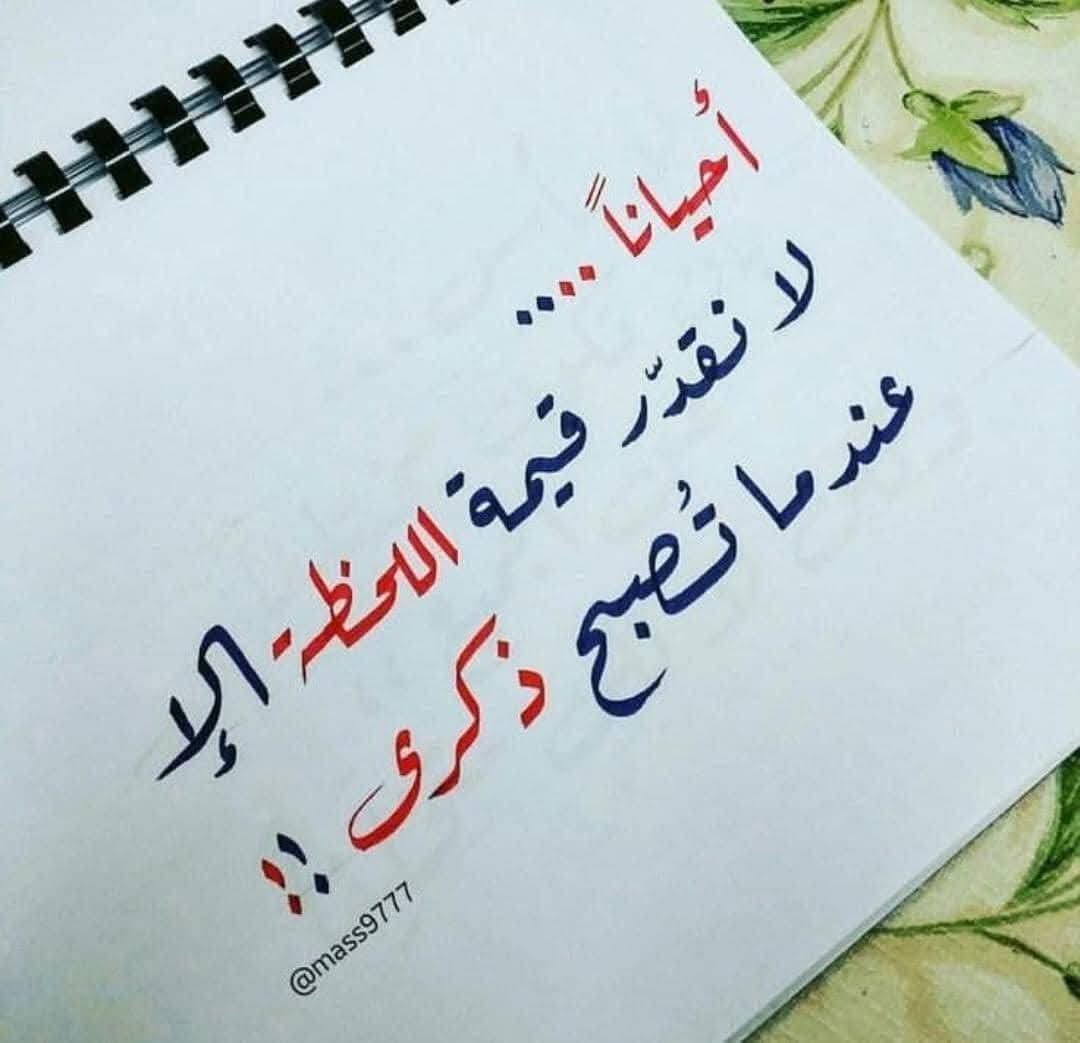 أحياناً ....
لا نقدّر قيمة اللحظة إلا
عندما تُصبح ذكرى !!
@mass9777